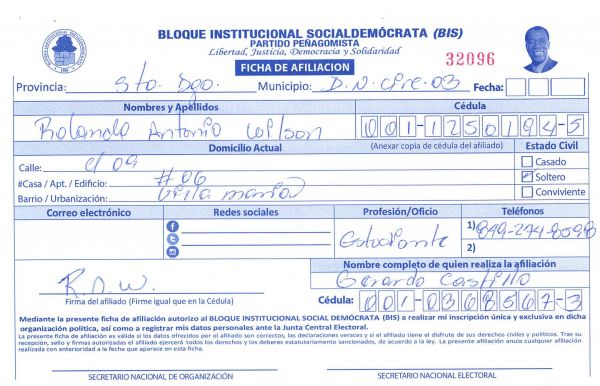 BLOQUE INSTITUCIONAL SOCIALDEMÓCRATA (BIS)
PARTIDO PEÑAGOMISTA
Libertad, Justicia, Democracia y Solidaridad
FICHA DE AFILIACION
32096
Provincia: Sto. Dgo. Municipio: D.N. Circ. 03 Fecha:
Nombres y Apellidos Cédula
Rolando Antonio Wilson 001-1250194-5
Domicilio Actual (Anexar copia de cédula del afiliado) Estado Civil
Calle: c/ 09 Casado
#Casa / Apt. / Edificio: #06 Soltero
Barrio / Urbanización: Villa Maria Conviviente
Correo electrónico Redes sociales Profesión/Oficio Teléfonos
Estudiante 1) 849-244-8598
2)
Nombre completo de quien realiza la afiliación
R.A.W. Gerardo Castillo
Firma del afiliado (Firme igual que en la Cédula) Cédula: 001-0368567-3
Mediante la presente ficha de afiliación autorizo al BLOQUE INSTITUCIONAL SOCIAL DEMÓCRATA (BIS) a realizar mi inscripción única y exclusiva en dicha
organización política, así como a registrar mis datos personales ante la Junta Central Electoral.
La presente ficha de afiliación es válida si los datos ofrecidos por el afiliado son correctos, las declaraciones veraces y si el afiliado tiene el disfrute de sus derechos civiles y políticos. Tras su
recepción, sello y firmas autorizadas el afiliado ejercerá todos los derechos y los deberes estatutariamente sancionados, de acuerdo a la ley. La presente afiliación anula cualquier afiliación
realizada con anterioridad a la fecha que aparece en esta ficha.
SECRETARIO NACIONAL DE ORGANIZACIÓN SECRETARIO NACIONAL ELECTORAL